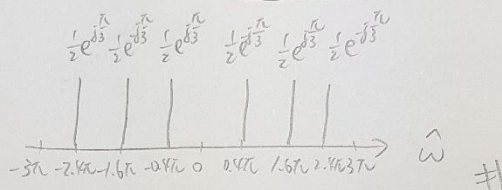 ½e^{j\frac{π}{3}} ½e^{-j\frac{π}{3}} ½e^{j\frac{π}{3}} ½e^{-j\frac{π}{3}} ½e^{j\frac{π}{3}} ½e^{-j\frac{π}{3}}
-3π -2.4π -1.6π -0.4π 0 0.4π 1.6π 2.4π 3π ω̂
#